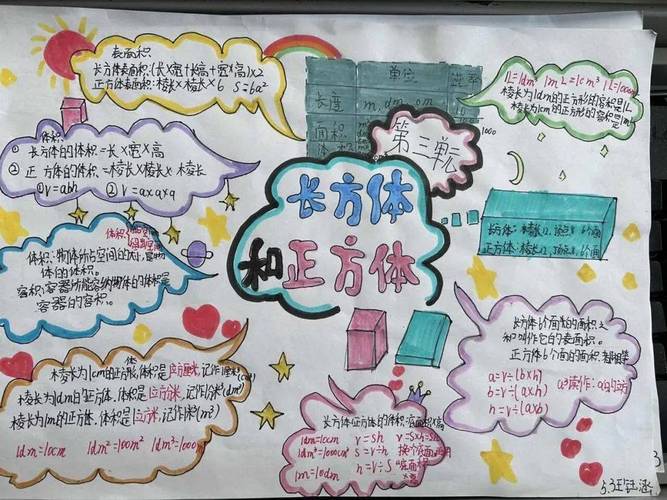 表面积:
长方体表面积:(长×宽+长×高+宽×高)×2
正方体表面积:棱长×棱长×6 S=6a²
单位
进率
长度 m、dm、cm
面积
体积
1000
1L=1dm³ 1mL=1cm³ 1L=1000mL
棱长为1dm的正方形的容积是1L
棱长为1cm的正方形的容积是1mL
体积:
① 长方体的体积=长×宽×高
② 正方体的体积=棱长×棱长×棱长
①V=abh ②V=a×a×a
第三单元
长方体
和正方体
长方体:棱长12、顶点8、6个面
正方体:棱长12、顶点8、6个面
体积:物体所占空间的大小,
体的体积。
容积:容器所能容纳物体的体积是
容器的容积。
长方体6个面的面积之
和叫作它的表面积。
正方体6个面的面积
a=V÷(b×h)
b=V÷(a×h)
h=V÷(a×b)
a³读作:a的立方
棱长为1cm的正方体,体积是1立方厘米,记作1厘米³(cm³)
棱长为1dm的正方体,体积是1立方分米,记作1分米³(dm³)
棱长为1m的正方体,体积是1立方米,记作1米³(m³)
1dm=10cm 1dm²=100cm² 1dm³=1000cm³
长方体/正方体的体积=底面积×高
1dm=10cm V=Sh V=S×h=Sh
1dm³=1000cm³ S=V÷h
1m=10dm h=V÷S